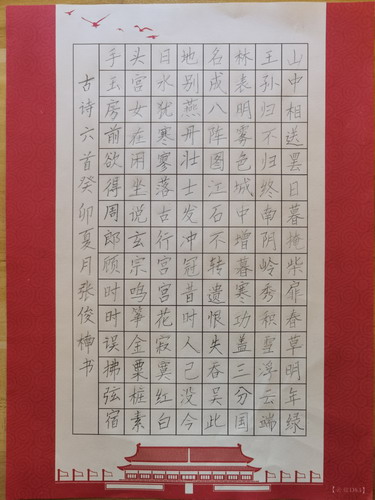 山中相送罢日暮掩柴扉春草明年绿
王孙归不归终南阴岭秀积雪浮云端
林表明雾色城中增暮寒功盖三分国
名成八阵图江石不转遗恨失吞吴此
地别燕丹壮士发冲冠昔时人已没今
日水犹寒寥落古行宫宫花寂寞红白
头宫女在闲坐说玄宗鸣筝金粟柱素
手玉房前欲得周郎顾时时误拂弦宿
古诗六首癸卯夏月张俊楠书